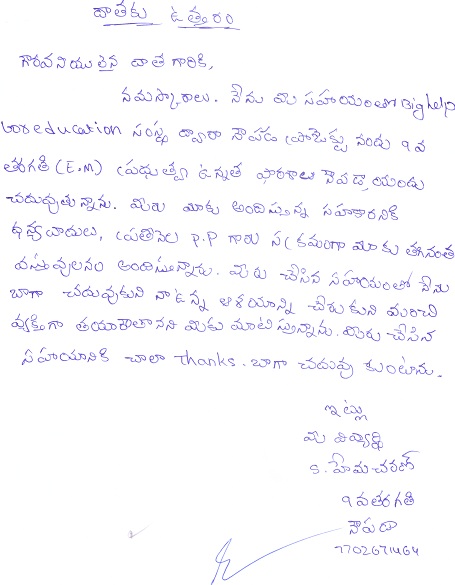 దాతకు ఉత్తరం
గౌరవనీయులైన దాత గారికి,
నమస్కారాలు. నేను మీ సహాయంతో Big help
for education సంస్థ ద్వారా నౌపడ ప్రాజెక్టు నందు 9వ
తరగతి (E.M) ప్రభుత్వ ఉన్నత పాఠశాల నౌపడా యందు
చదువుతున్నాను. మీరు మాకు అందిస్తున్న సహకారానికి
ధన్యవాదులు, ప్రతినెల P.P గారు సక్రమంగా మాకు తగినంత
వస్తువులను అందిస్తున్నారు. మీరు చేసిన సహాయంతో నేను
బాగా చదువుకుని నా ఉన్న ఆశయాన్ని చేరుకుని మంచి
వ్యక్తిగా తయారౌతానని మీకు మాటిస్తున్నాను. మీరు చేసిన
సహాయానికి చాలా thanks. బాగా చదువు కుంటాను.
ఇట్లు
మీ విద్యార్థి
S. హేమ చరణ్
9వ తరగతి
నౌపడా
7702671464